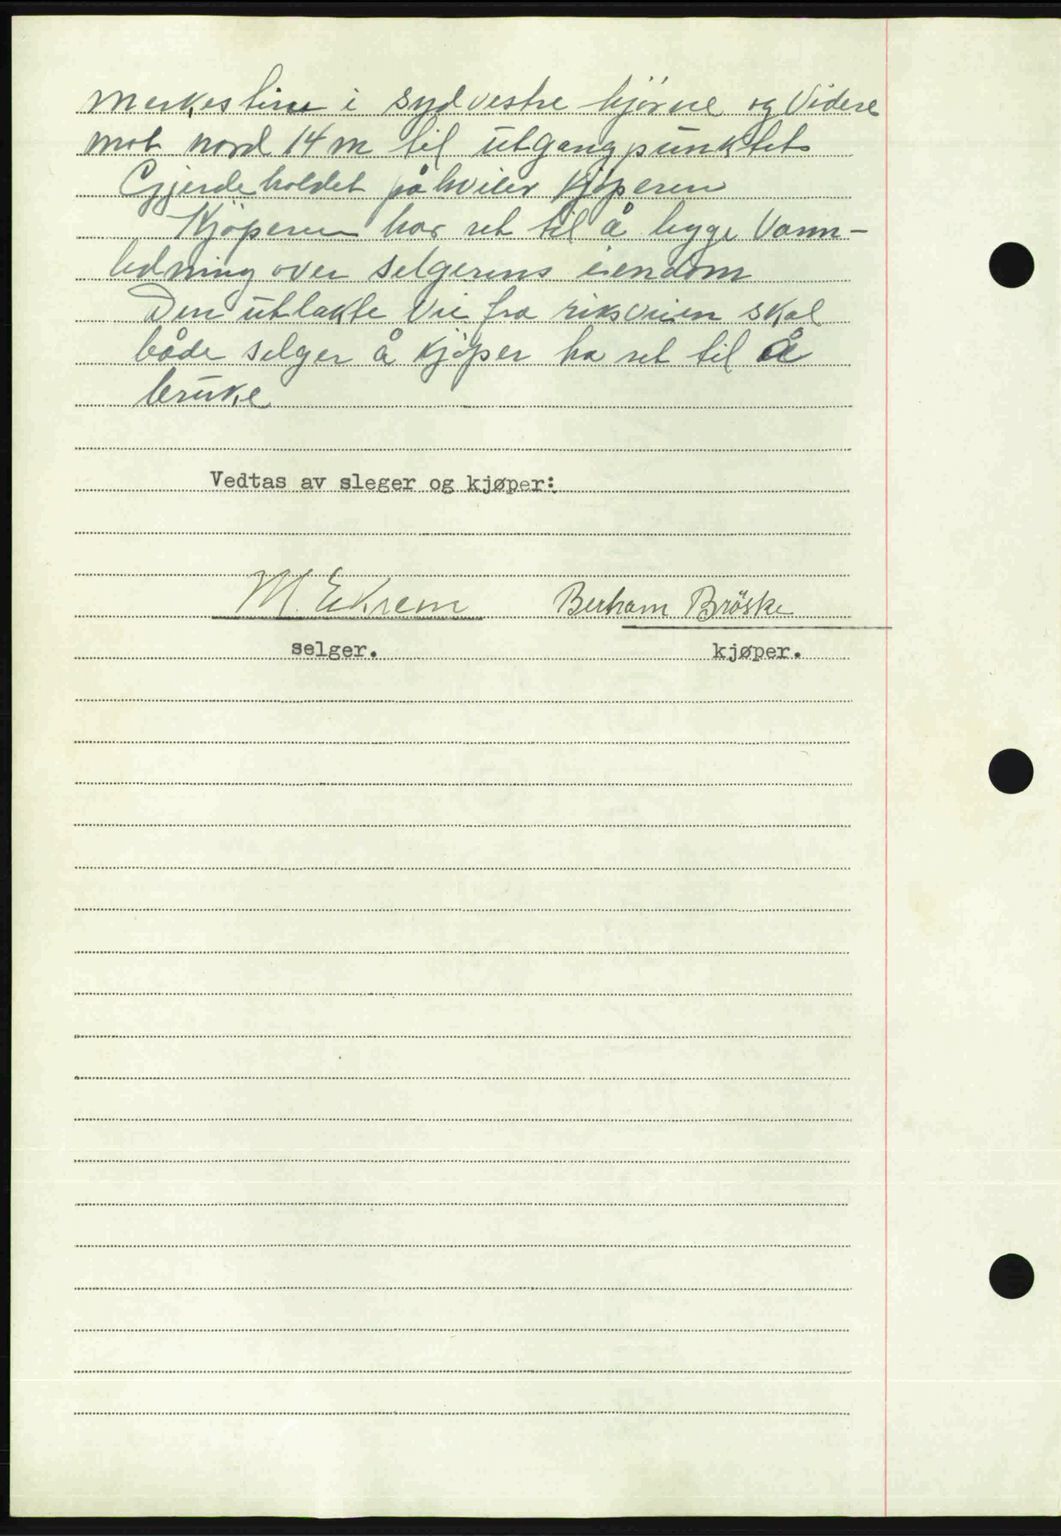 merkestine i sydvestre hjørne og Videre
mot nord 14 m til utgangpunktet
Gjerdeholdet påhviler Kjøperen
Kjøperen har ret til å legge Vann-
ledning over selgerens eiendom
Den utlakte Vei fra riksveien skal
både selger å Kjøper ha ret til å
bruke
Vedtas av sleger og kjøper:
M. Ekrem Berham Bröske
selger. kjøper.